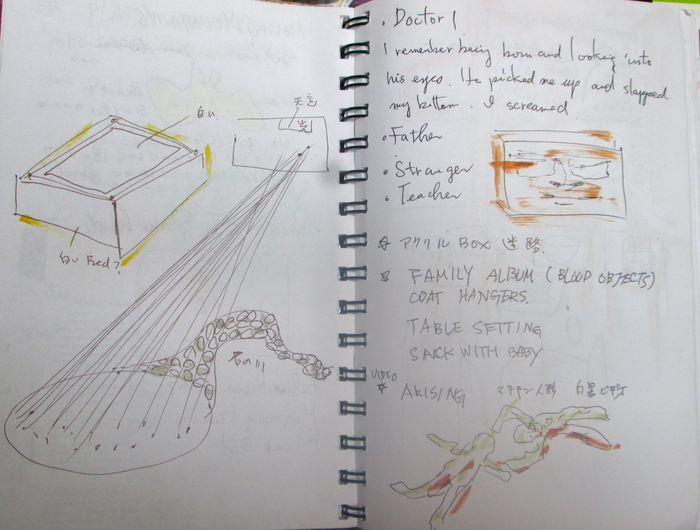 白い
天窓
光
白い Bed?
石の川
. Doctor 1
I remember being born and looking into
his eyes. He picked me up and slapped
my bottom. I screamed.
• Father
• Stranger
• Teacher
アクリル BOX 迷路
FAMILY ALBUM (BLOOD OBJECTS)
COAT HANGERS.
TABLE SETTING
SACK WITH BABY
VIDEO
ARISING 人形 白黒ビデオ